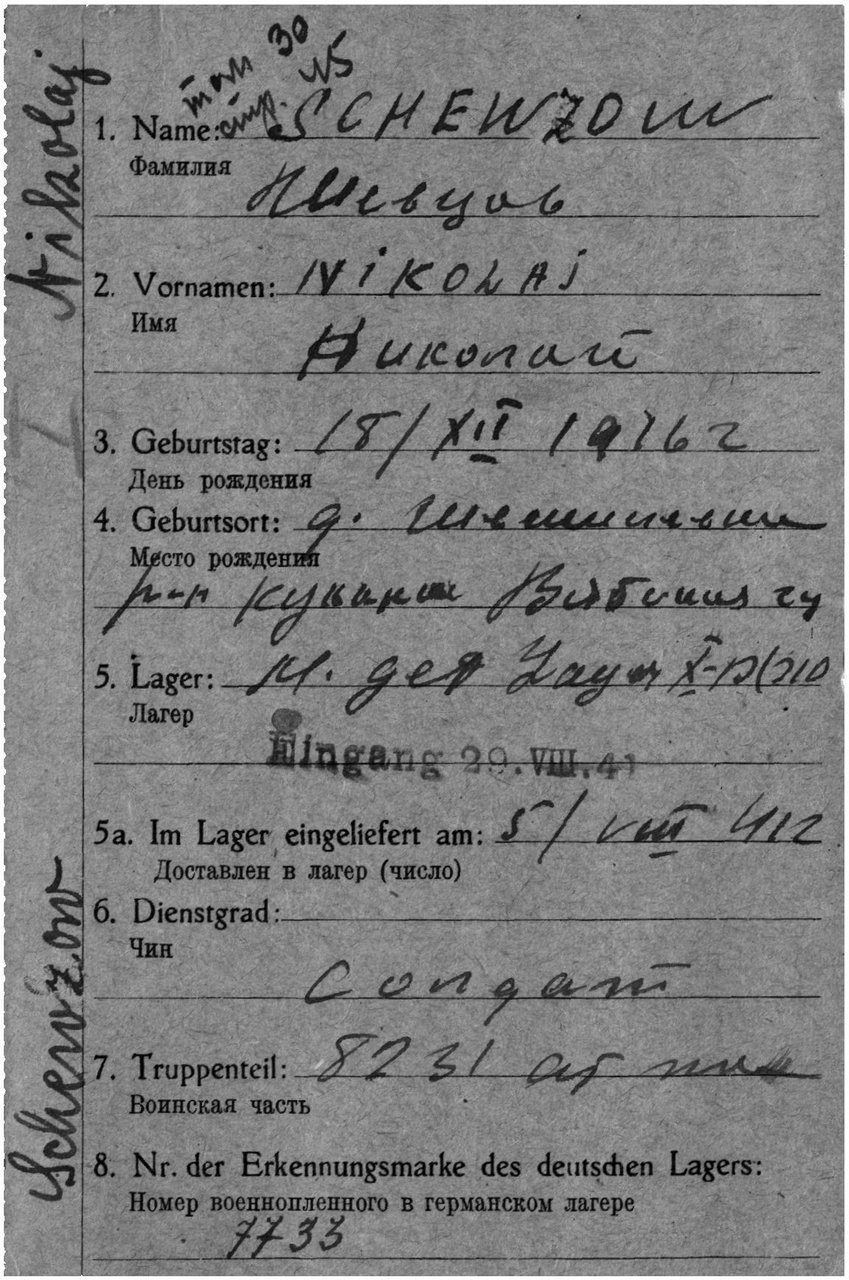 30
N5
1. Name: SCHEWZOW
Фамилия
Шевцов
2. Vornamen: NIKOLAJ
Имя
Николай
3. Geburtstag: 18/XII 1916 г
День рождения
4. Geburtsort: д.
Место рождения
р-н
5. Lager: X-D(310
Лагер
Eingang 29.VIII.41
5a. Im Lager eingeliefert am: 5/VIII 41 г
Доставлен в лагер (число)
6. Dienstgrad:
Чин
Солдат
7. Truppenteil: 8231
Воинская часть
8. Nr. der Erkennungsmarke des deutschen Lagers:
Номер военнопленного в германском лагере
7733
Schewzow Nikolaj